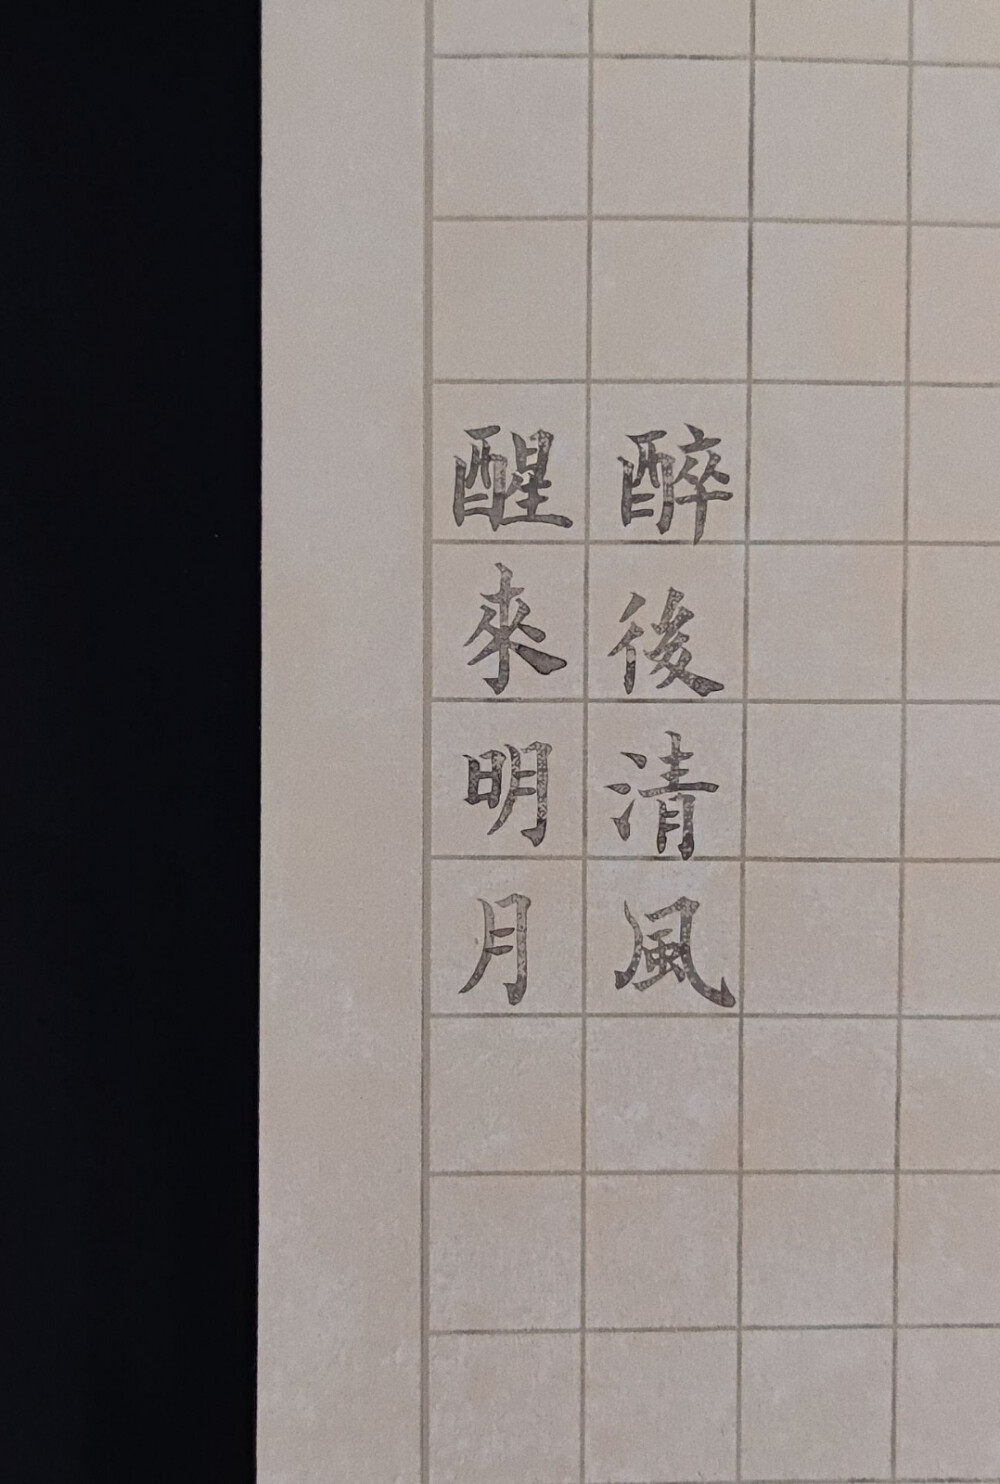 醉後清風
醒來明月